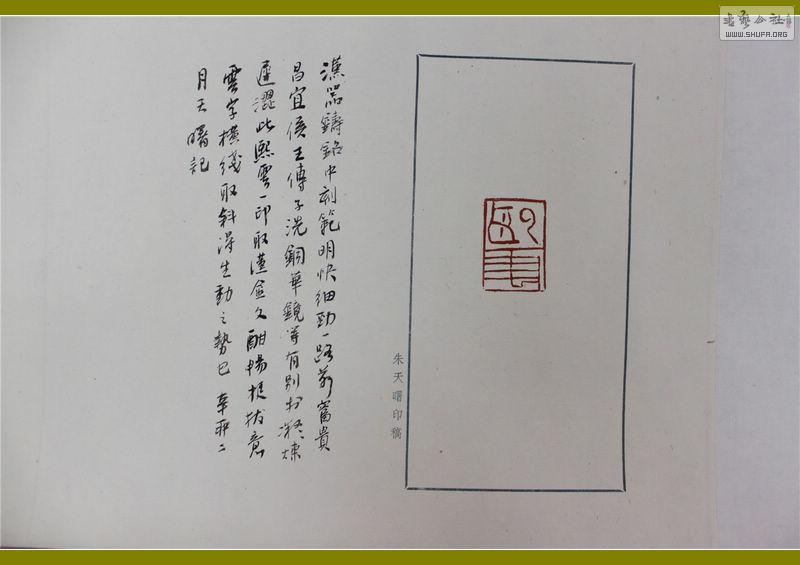 書藝公社
WWW.SHUFA.ORG
朱天曙印稿
漢器鑄銘中刻範明快細勁一路若富貴
昌宜侯王傳子洗銅華鏡等有別於凝煉
遲澀此熙雲一印取漢金文酣暢挺拔意
雲字橫綫取斜得生動之勢已 辛卯二
月天曙記